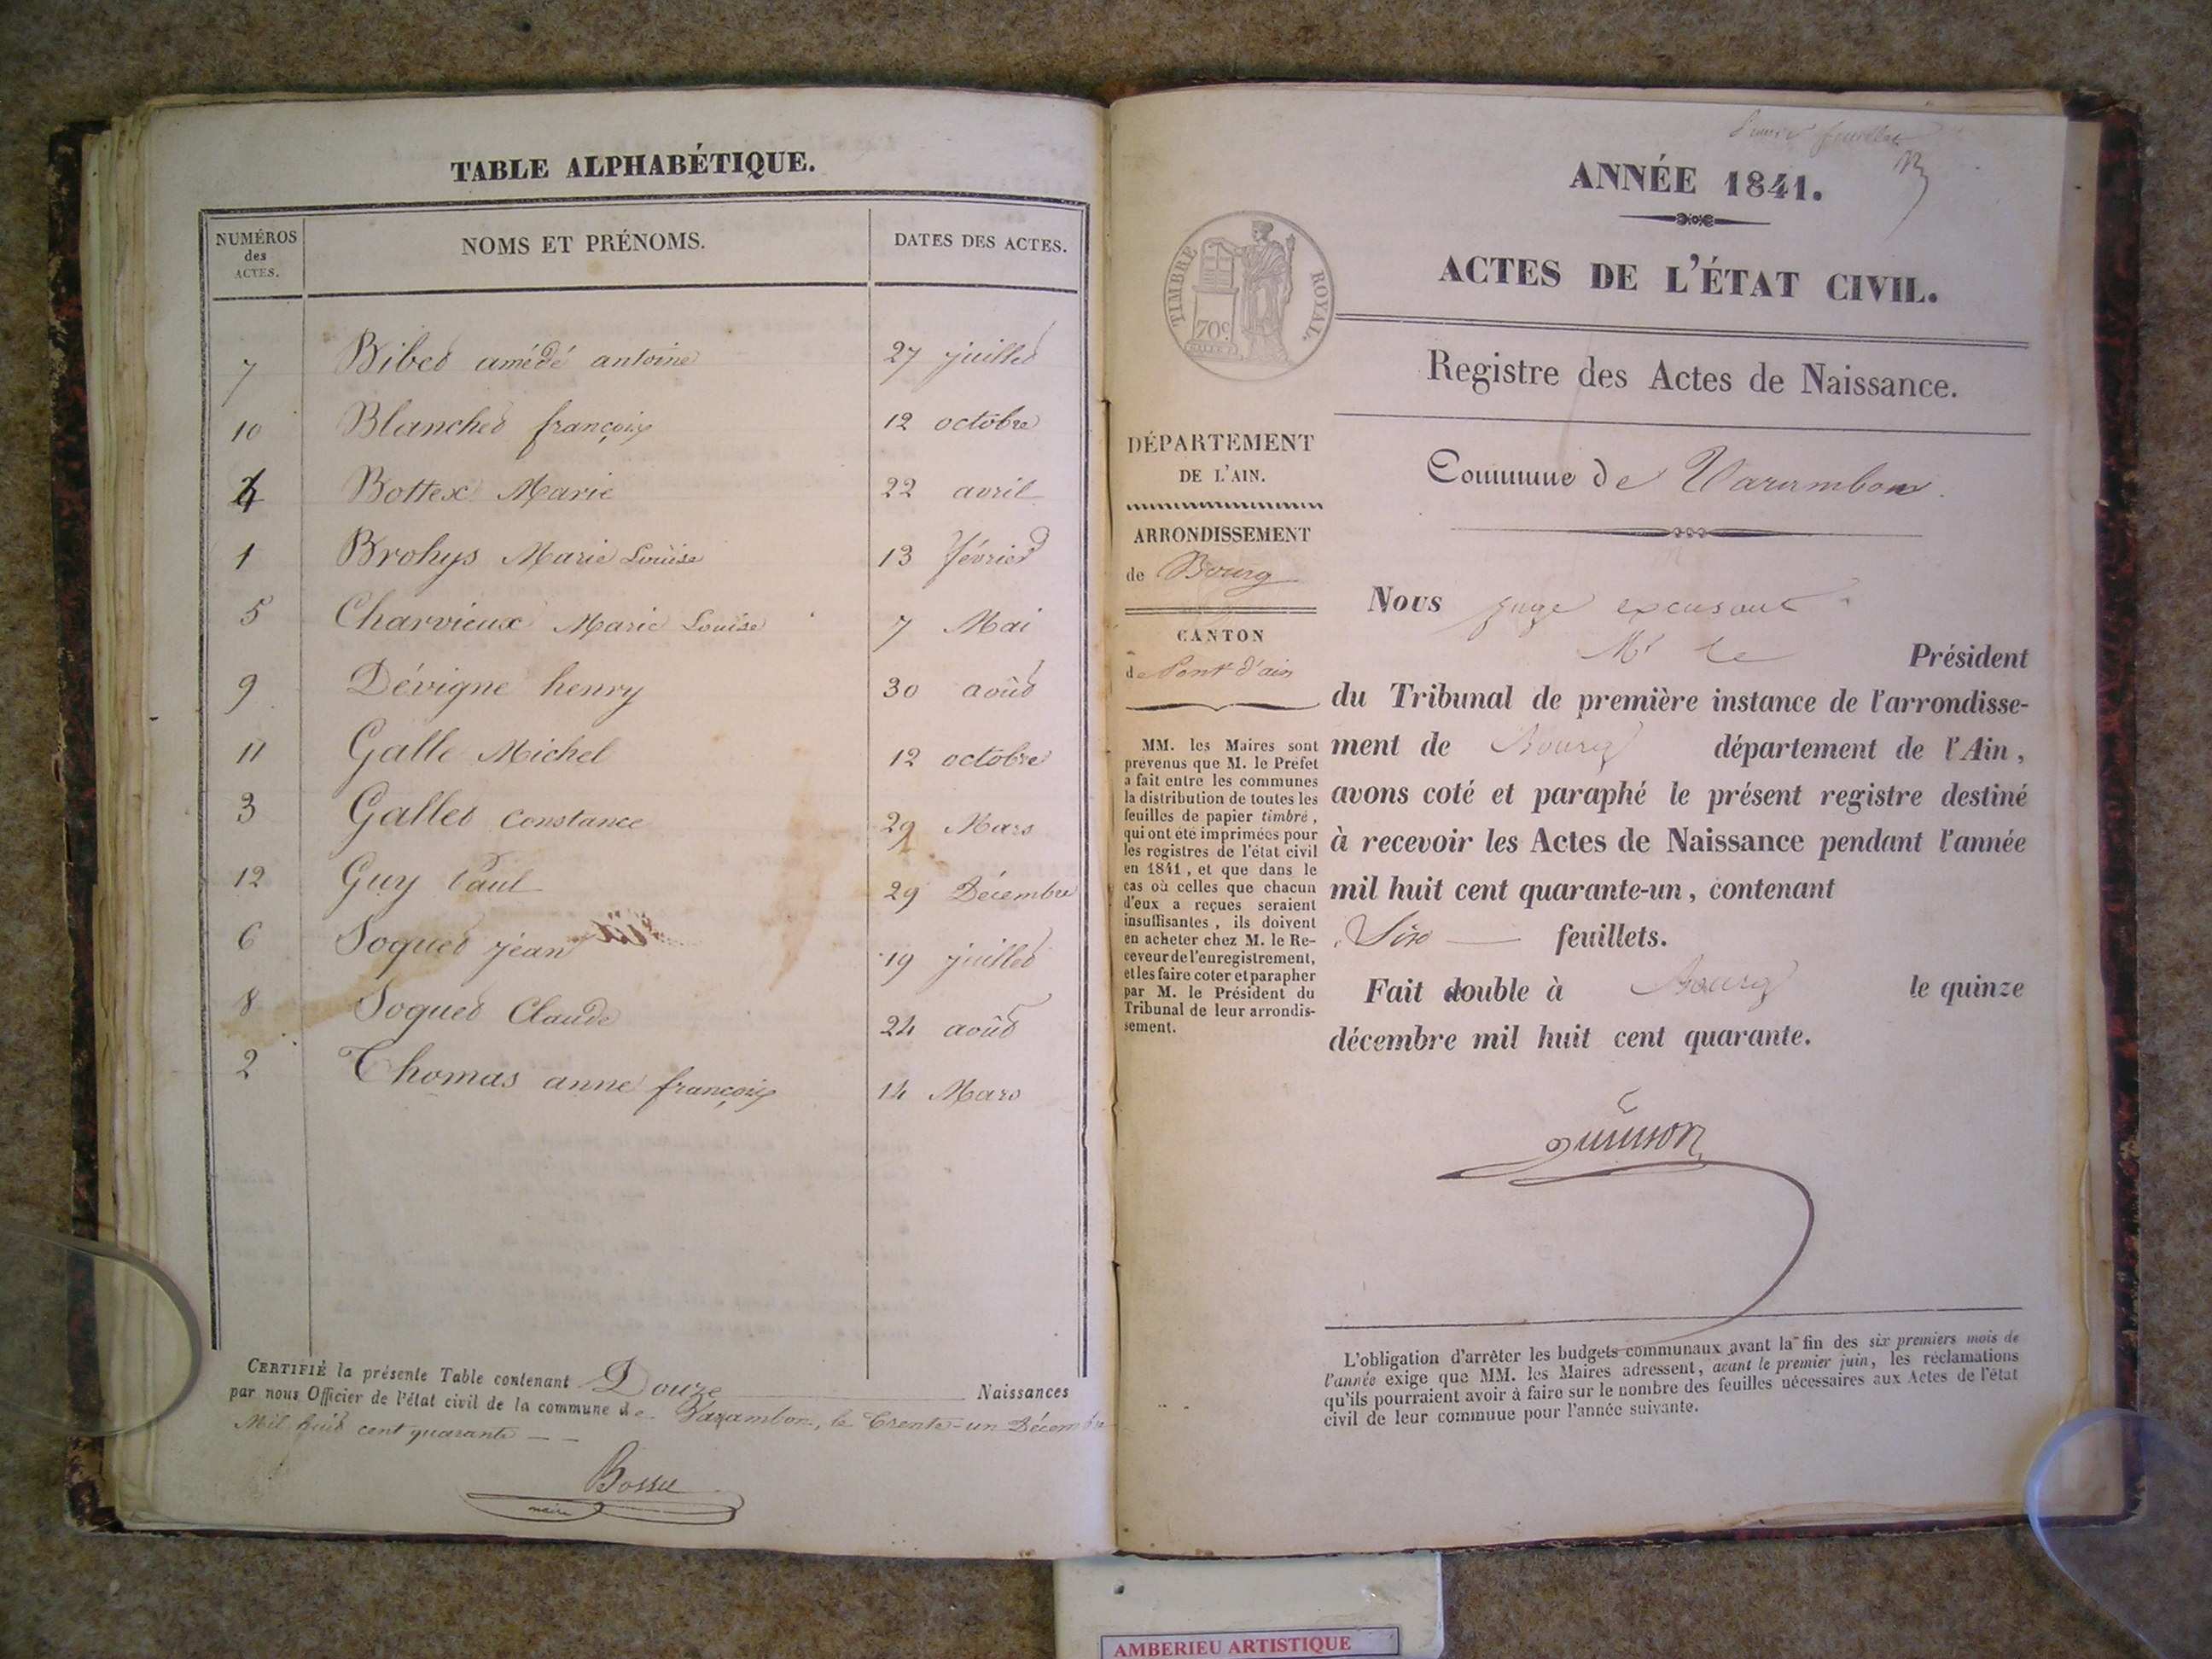 TABLE ALPHABÉTIQUE.
NUMÉROS des ACTES. NOMS ET PRÉNOMS. DATES DES ACTES.
7 Bibet amédé antoine 27 juillet
10 Blanchet françois 12 octobre
4 Bottex Marie 22 avril
1 Brohys Marie Louise 13 février
5 Charvieux Marie Louise 7 Mai
9 Dévigne henry 30 août
11 Galle Michel 12 octobre
3 Gallet Constance 29 Mars
12 Guy Paul 29 Décembre
6 Soquet jean 19 juillet
8 Soquet Claude 24 août
2 Thomas anne françoise 14 Mars
CERTIFIÉ la présente Table contenant Douze Naissances
par nous Officier de l'état civil de la commune de Varambon, le Trente-un Décembre
Mil huit cent quarante
Bossu
maire
feuillet
ANNÉE 1841.
ACTES DE L'ÉTAT CIVIL.
TIMBRE ROYAL.
70c
Registre des Actes de Naissance.
DÉPARTEMENT
DE L'AIN.
ARRONDISSEMENT
de Bourg
CANTON
de Pont d'ain
MM. les Maires sont
prévenus que M. le Préfet
a fait entre les communes
la distribution de toutes les
feuilles de papier timbré,
qui ont été imprimées pour
les registres de l'état civil
en 1841, et que dans le
cas où celles que chacun
d'eux a reçues seraient
insuffisantes, ils doivent
en acheter chez M. le Re-
ceveur de l'enregistrement,
et les faire coter et parapher
par M. le Président du
Tribunal de leur arrondis-
sement.
Commune de Varambon
Nous juge excusant
Mr le Président
du Tribunal de première instance de l'arrondisse-
ment de Bourg département de l'Ain,
avons coté et paraphé le présent registre destiné
à recevoir les Actes de Naissance pendant l'année
mil huit cent quarante-un, contenant
Six feuillets.
Fait double à Bourg le quinze
décembre mil huit cent quarante.
L'obligation d'arrêter les budgets communaux avant la fin des six premiers mois de
l'année exige que MM. les Maires adressent, avant le premier juin, les réclamations
qu'ils pourraient avoir à faire sur le nombre des feuilles nécessaires aux Actes de l'état
civil de leur commune pour l'année suivante.
AMBERIEU ARTISTIQUE